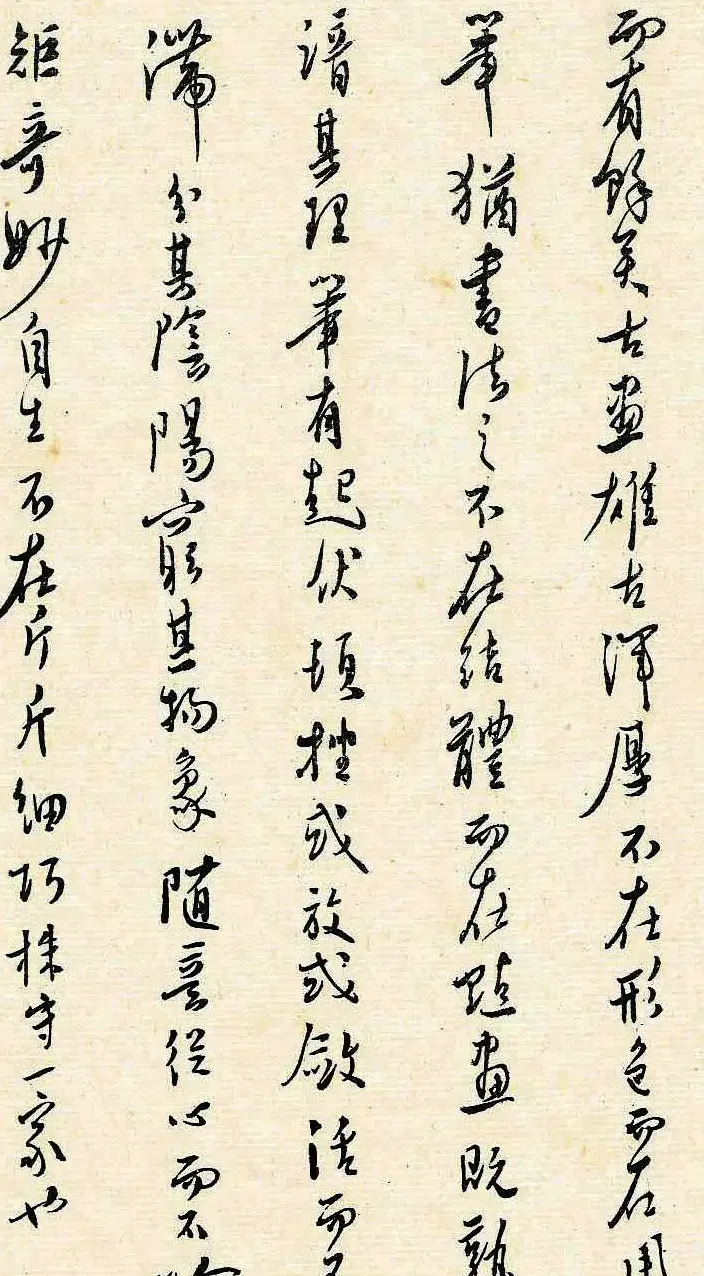 而有餘矣古畫雄古渾厚不在形色而在用
筆猶書法之不在結體而在點畫既熟
譜其理筆有起伏頓挫或放或斂活而不
滯分其陰陽窮其物象隨意從心而不
矩奇妙自生不在斤斤細巧株守一家也